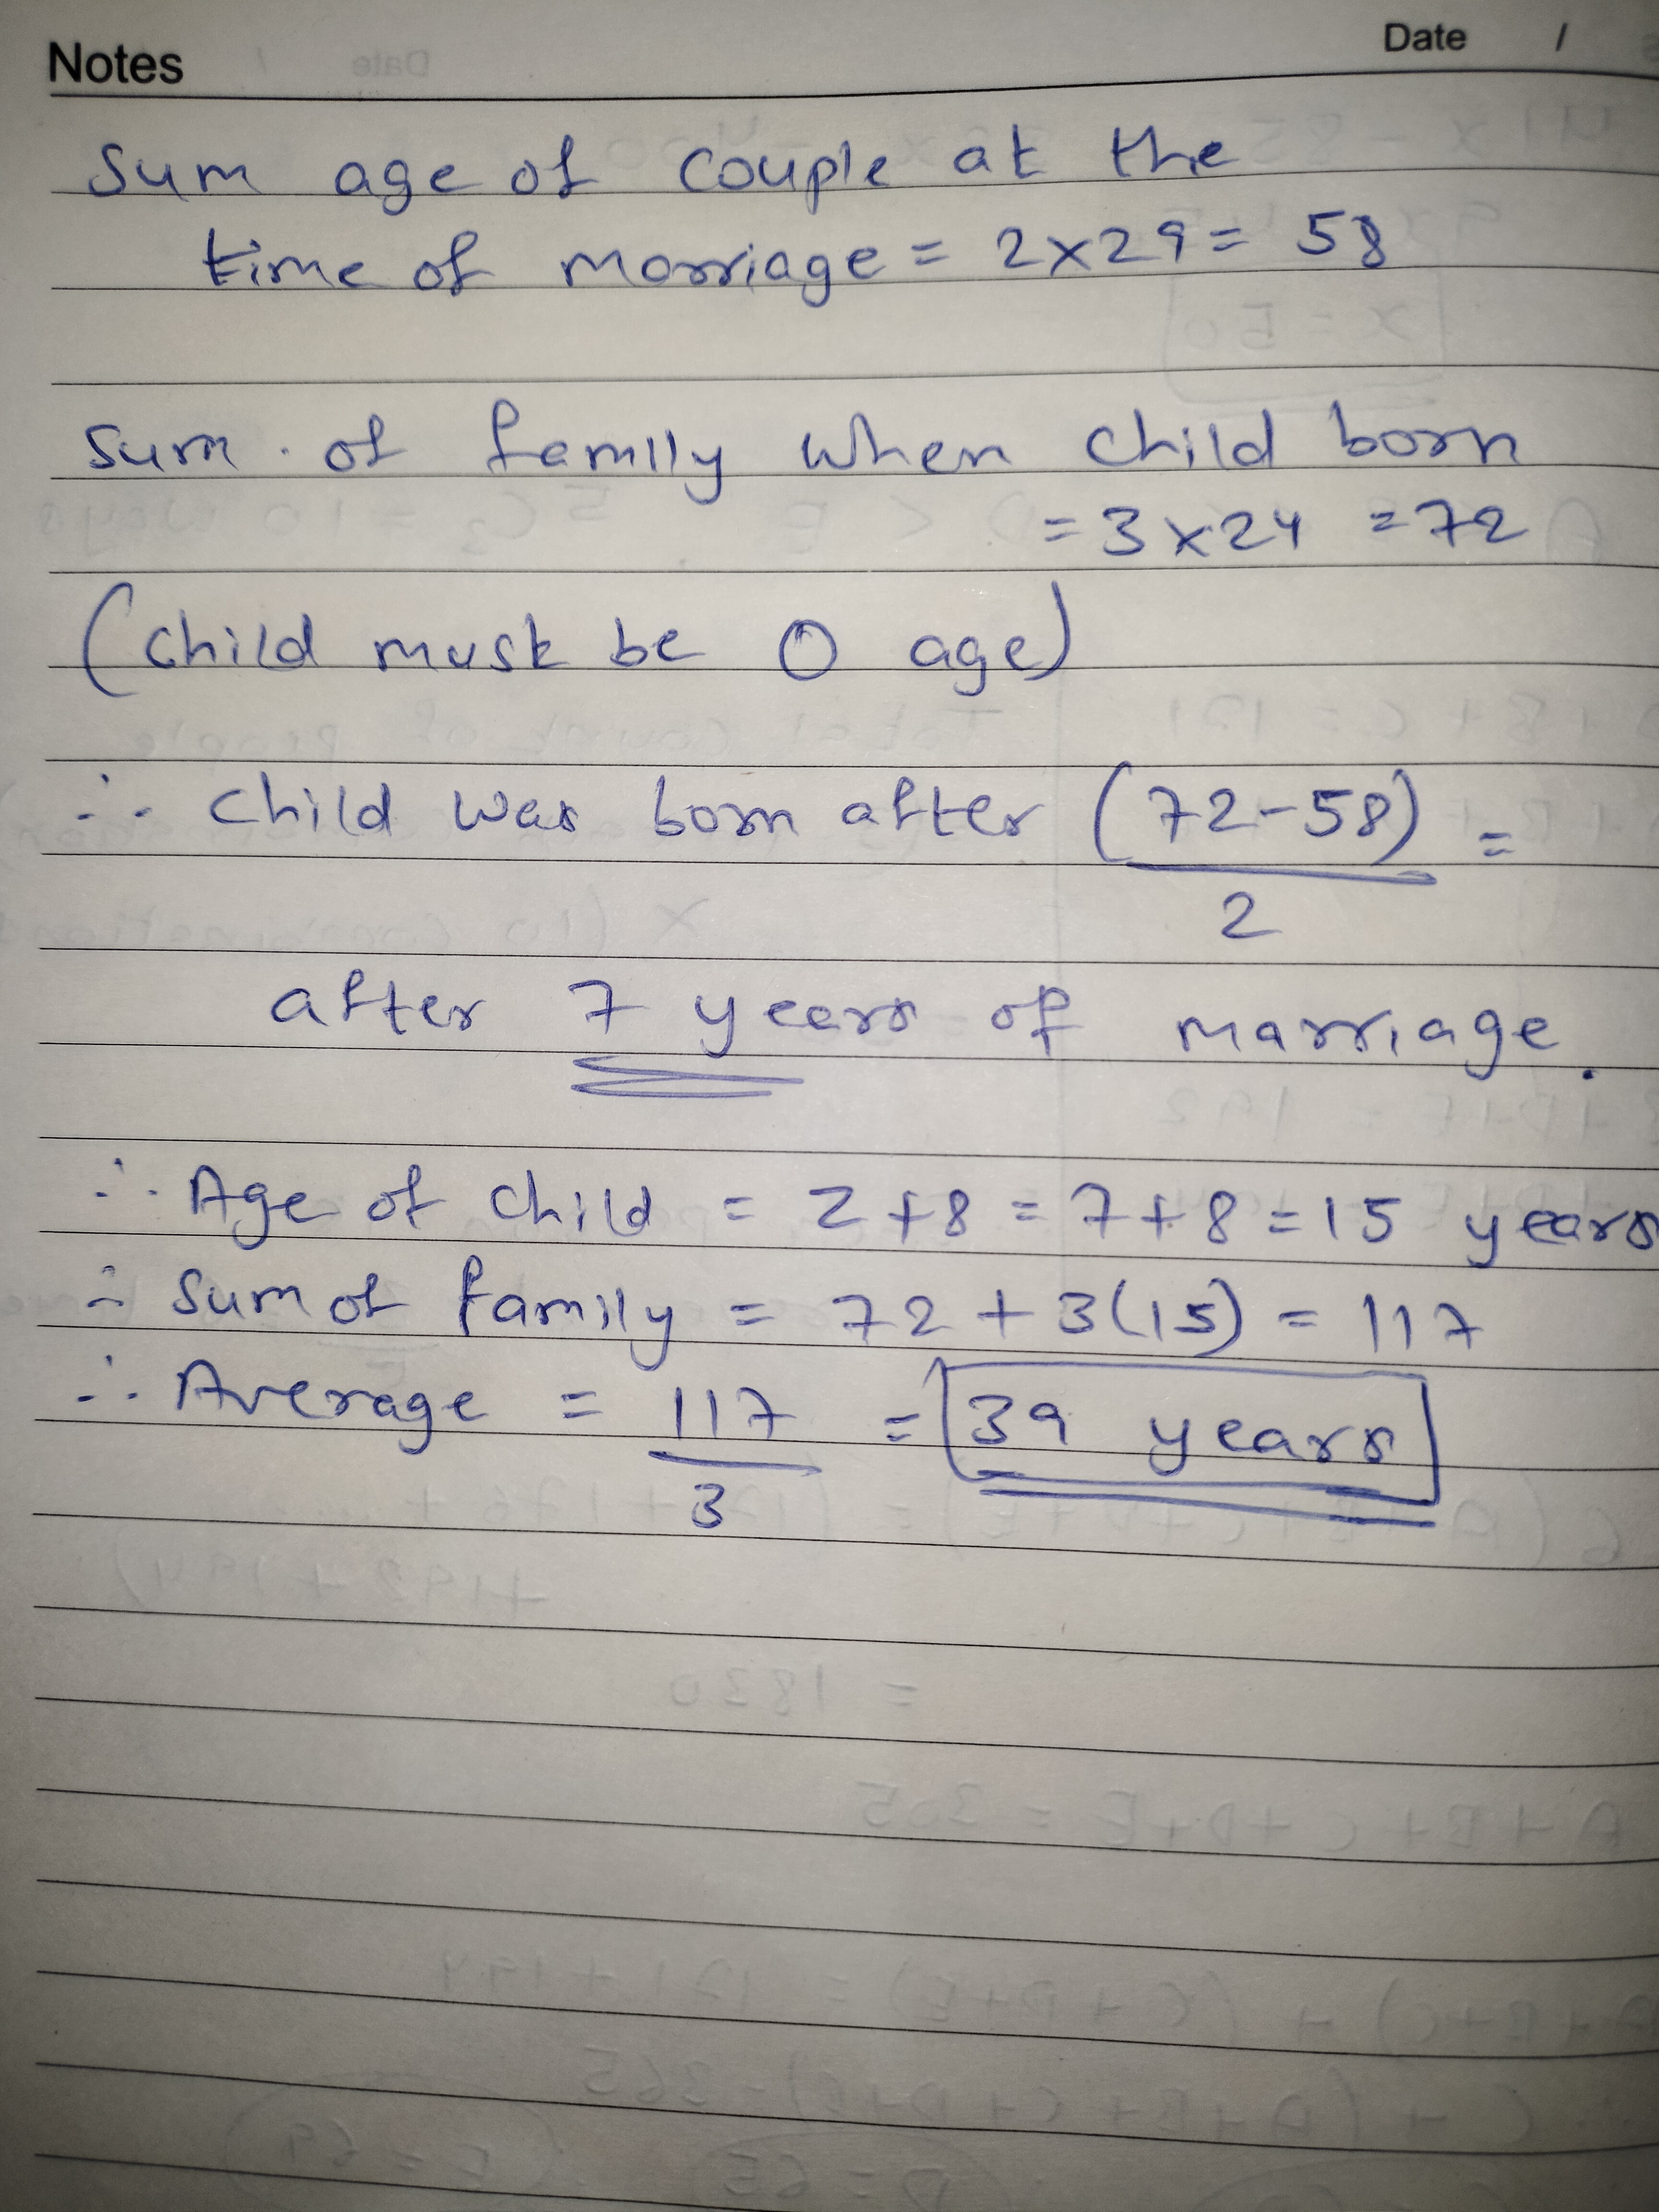 Notes
Date /
Sum age of couple at the
time of marriage = 2x29 = 58
Sum of family when child born
= 3 x 24 = 72
(child must be 0 age)
∴ Child was born after (72-58) =
2
after 7 years of marriage.
∴ Age of child = 2 + 8 = 7 + 8 = 15 years
∴ Sum of family = 72 + 3(15) = 117
∴ Average = 117 = 39 years
3